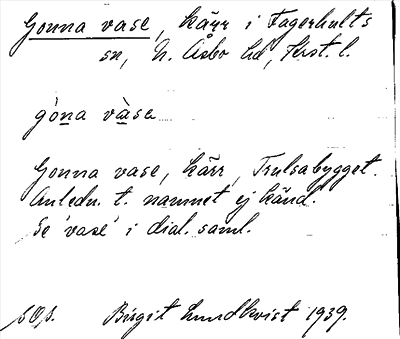 Gonna vase, kärr i Fagerhults
sn, N. Åsbo hd, Krist. l.
gòna vàse
Gonna vase, kärr, Trulsabygget.
Anledn. t. namnet ej känd.
Se 'vase' i dial. saml.
Birgit Lundkvist 1939.